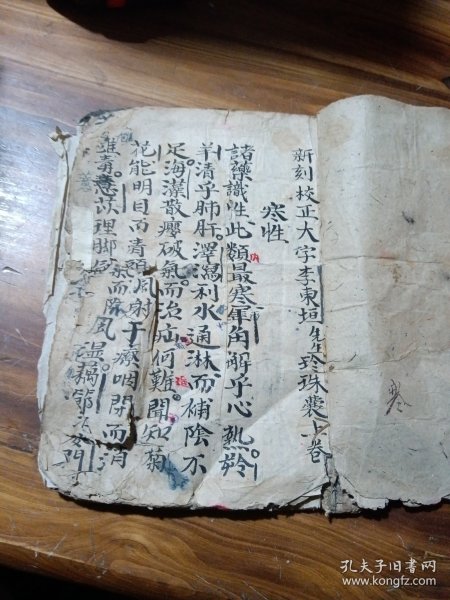 新刻校正大字李東垣先生珍珠囊上卷
寒性
諸藥識性此類最寒犀角解乎心熱羚
羊清乎肺肝澤瀉利水通淋而補陰不
足海藻散癭破氣而治疝何難聞知菊
花能明目而青頭風射干療咽閉而消
癰毒薏苡理脚氣而除風濕藕節
寒
孔夫子旧书网
www.kongfz.com